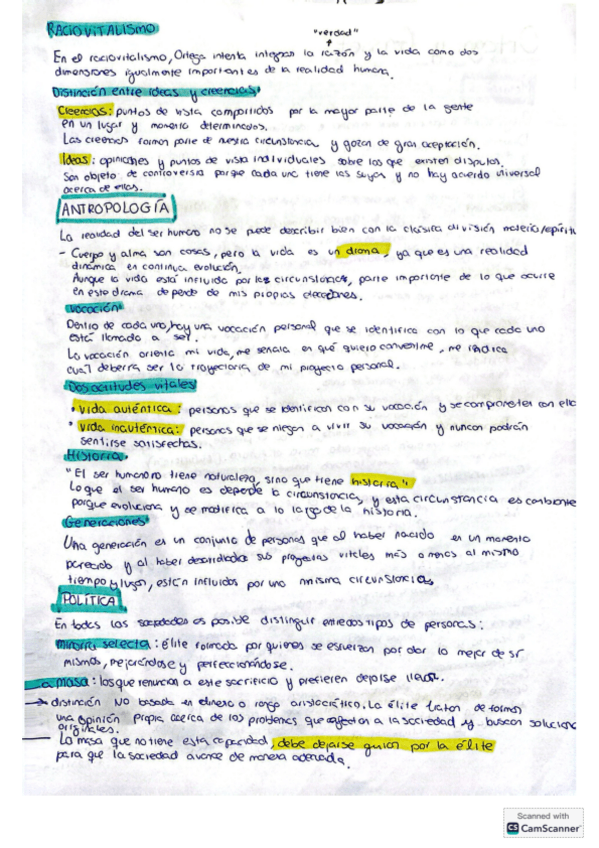 RACIOVITALISMO
"verdad"
En el raciovitalismo, Ortega intenta integrar la razón y la vida como dos
dimensiones igualmente importantes de la realidad humana.
Distinción entre ideas y creencias
Creencias: puntos de vista compartidos por la mayor parte de la gente
en un lugar y momento determinados.
Las creencias forman parte de nuestra circunstancia y gozan de gran aceptación.
Ideas: opiniones y puntos de vista individuales sobre los que existen disputas.
Son objeto de controversia porque cada uno tiene las suyas y no hay acuerdo universal
acerca de ellas.
ANTROPOLOGÍA
La realidad del ser humano no se puede describir bien con la clásica división materia/espíritu
- Cuerpo y alma son cosas, pero la vida es un drama, ya que es una realidad
dinámica en continua evolución.
Aunque la vida está influida por las circunstancias, parte importante de lo que ocurre
en este drama depende de mis propias elecciones.
Vocación
Dentro de cada uno, hay una vocación personal que se identifica con lo que cada uno
está llamado a ser.
La vocación orienta mi vida, me señala en qué quiero convertirme, me indica
cuál deberra ser la trayectoria de mi proyecto personal.
Dos actitudes vitales
• Vida auténtica: personas que se identifican con su vocación y se comprometen con ella
• Vida inauténtica: personas que se niegan a vivir su vocación y nuncan podrán
sentirse satisfechas.
Historia
"El ser humano no tiene naturaleza, sino que tiene historia"
Lo que el ser humano es depende la circunstancias, y esta circunstancia es cambiante
porque evoluciona y se modifica a lo largo de la historia.
Generaciones
Una generación es un conjunto de personas que al haber nacido en un momento
parecido y al haber desarrollados sus proyectos vitales más o menos al mismo
tiempo y lugar, están influidos por una misma circunstancias
POLÍTICA
En todas las sociedades es posible distinguir entre dos tipos de personas:
minoría selecta: élite formada por quienes se esfuerzan por dar lo mejor de sí
mismos, mejorándose y perfeccionándose.
la masa: los que renuncian a este sacrificio y prefieren dejarse llevar.
→ distinción NO basada en dinero o rango aristocrático. La élite tratan de formar
una opinión propia acerca de los problemas que afectan a la sociedad y buscan soluciones
originales.
La masa que no tiene esta capacidad, debe dejarse guiar por la élite
para que la sociedad avance de manera adecuada.
Scanned with
CS CamScanner